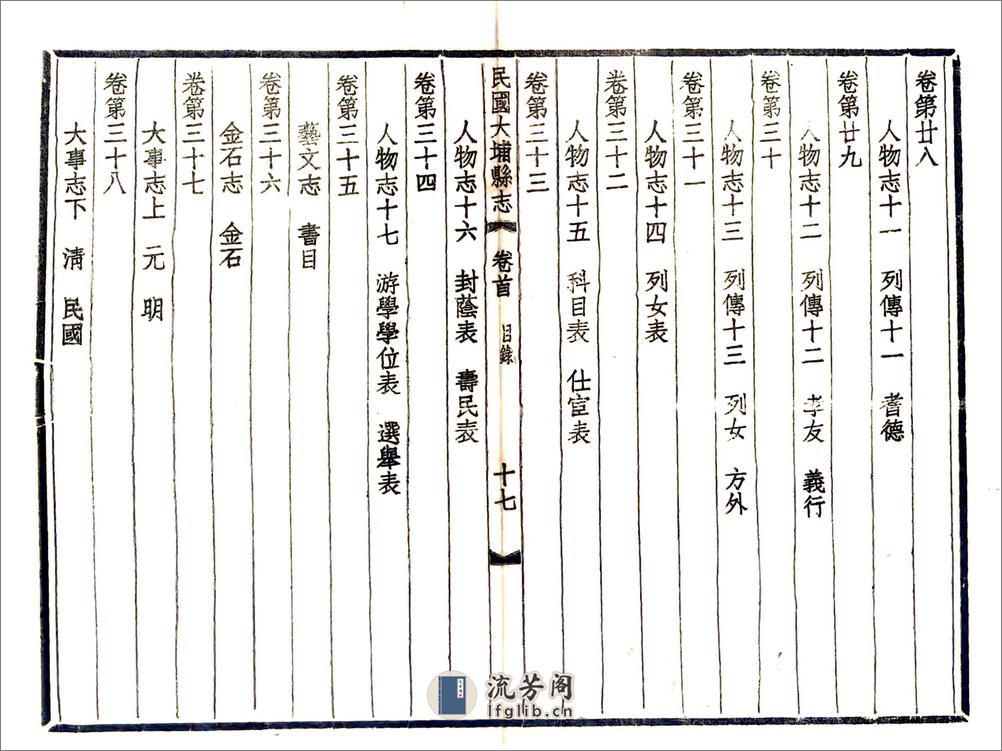 卷第廿八
人物志十一 列傳十一 耆德
卷第廿九
人物志十二 列傳十二 孝友 義行
卷第三十
人物志十三 列傳十三 列女 方外
卷第三十一
人物志十四 列女表
卷第三十二
人物志十五 科目表 仕宦表
卷第三十三
民國大埔縣志 卷首 目錄 十七
人物志十六 封蔭表 壽民表
卷第三十四
人物志十七 游學學位表 選舉表
卷第三十五
藝文志 書目
卷第三十六
金石志 金石
卷第三十七
大事志上 元 明
卷第三十八
大事志下 清 民國
流芳阁
lfglib.cn